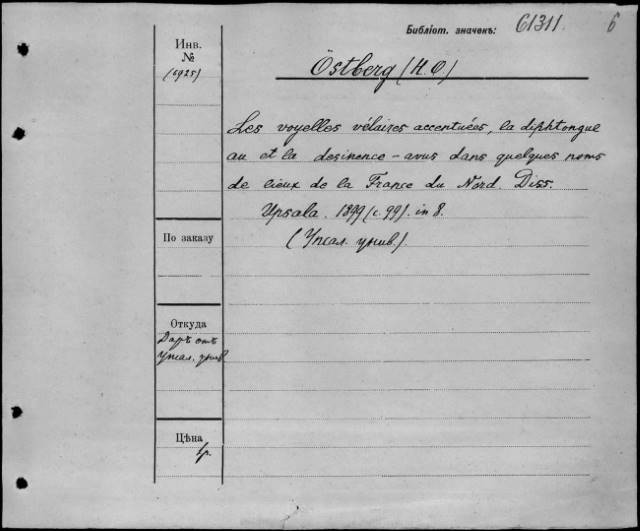 Библіот. значекъ: 61311. 6
Инв. №
(6925)
Östberg (H. O.)
Les voyelles vélaires accentuées, la diphtongue
au et la desinence -avus dans quelques noms
de lieux de la France du Nord. Diss.
Upsala. 1899 (c. 99). in 8.
(Упсал. унив.).
По заказу
Откуда
Даръ отъ
Упсал. унив.
Цѣна